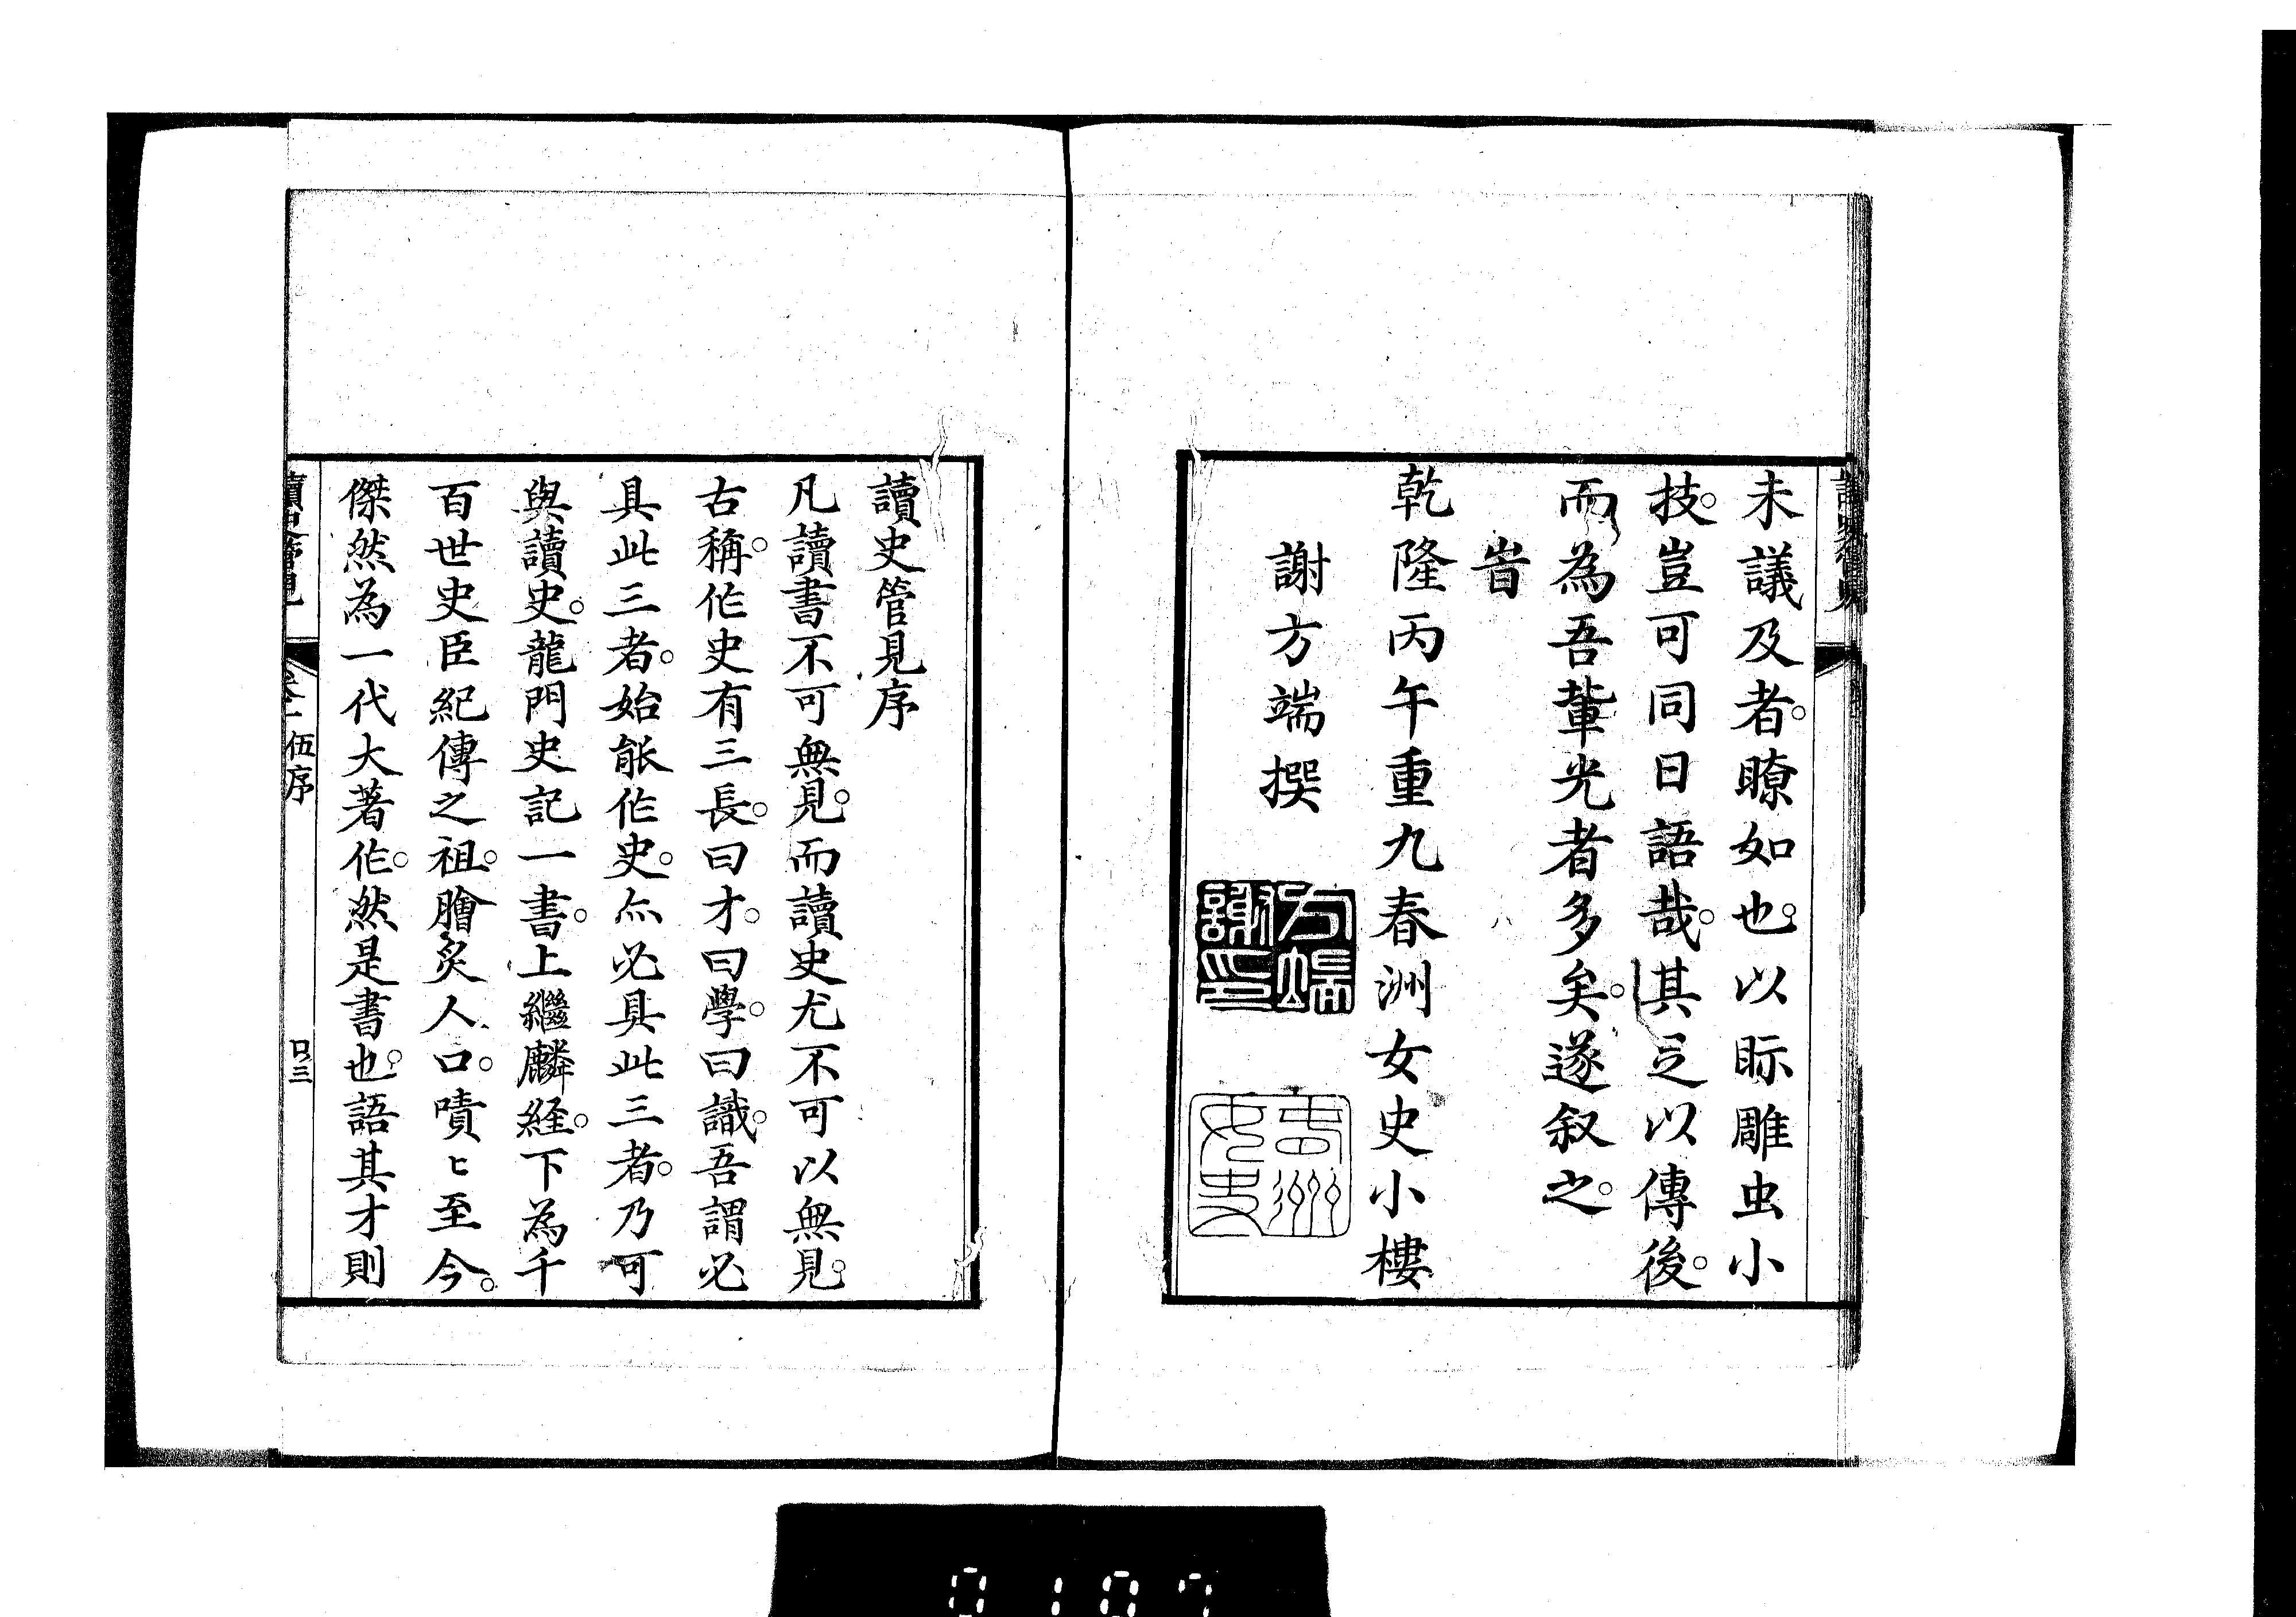 讀史管見
未議及者。瞭如也。以眎雕虫小
技。豈可同日語哉。其足以傳後。
而為吾軰光者多矣。遂叙之。
旹
乾隆丙午重九春洲女史小樓
謝方端撰
方端謝印
春洲女史
讀史管見序
凡讀書不可無見。而讀史尤不可以無見。
古稱。作史有三長。曰才。曰學。曰識。吾謂必
具此三者。始能作史。亦必具此三者。乃可
與讀史。龍門史記一書。上繼麟経。下為千
百世史臣紀傳之祖。膾炙人口。嘖〻至今。
傑然為一代大著作。然是書也。語其才則
讀史管見 卷一 伍序 口三
0107